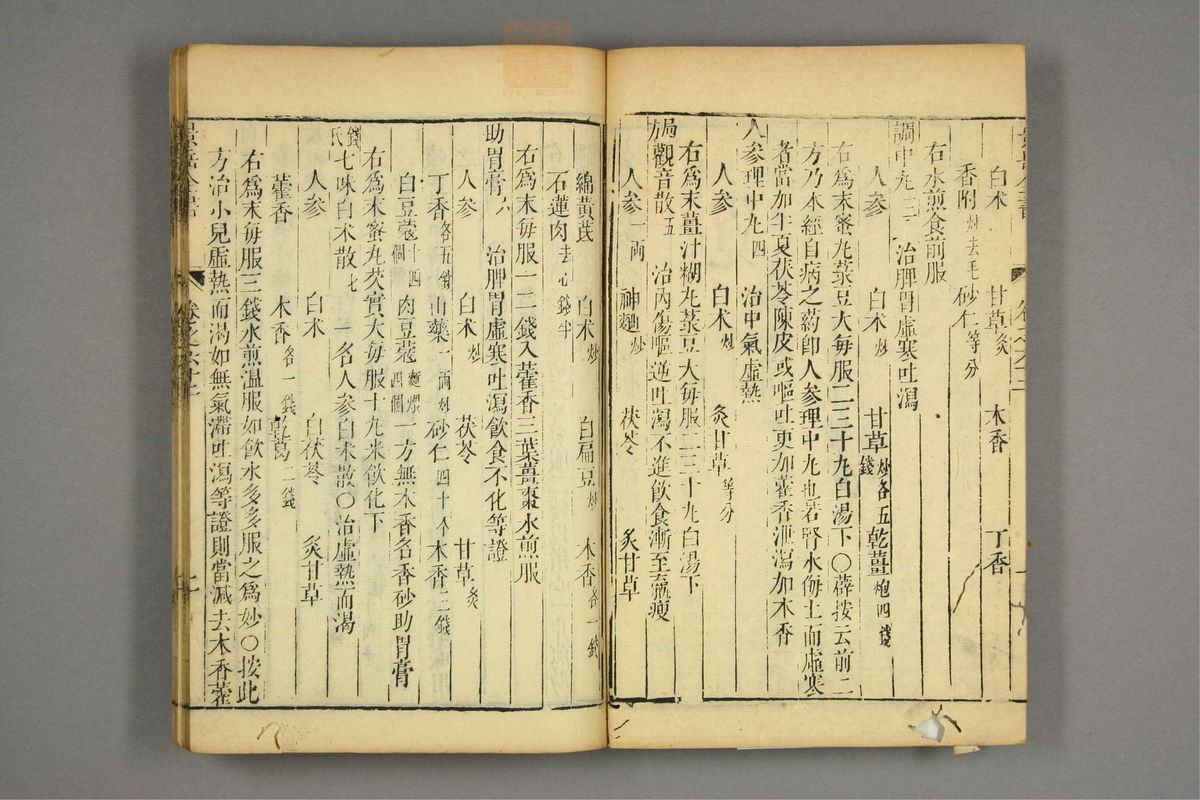 白术　甘草炙　木香　丁香
香附炒去毛　砂仁等分
右水煎食前服
調中丸三　治脾胃虛寒吐瀉
人參　白术炒　甘草炒各五錢　乾薑炮四錢
右為末蜜丸菉豆大每服二三十丸白湯下○薛按云前二
方乃本經自病之藥卽人參理中丸也若腎水侮土而虛寒
者當加半夏茯苓陳皮或嘔吐更加藿香泄瀉加木香
人參理中丸四　治中氣虛熱
人參　白术炒　炙甘草等分
右為末薑汁糊丸菉豆大每服二三十丸白湯下
局方觀音散五　治內傷嘔逆吐瀉不進飲食漸至羸瘦
人參一兩　神麯炒　茯苓　炙甘草
綿黃芪　白术炒　白扁豆炒　木香各一錢
石蓮肉去心錢半
右為末每服一二錢入藿香三葉薑棗水煎服
助胃膏六　治脾胃虛寒吐瀉飲食不化等證
人參　白术炒　茯苓　甘草炙
丁香各五錢　山藥一兩炒　砂仁四十个　木香三錢
白豆蔻十四個　肉豆蔻麵煨四個　一方無木香名香砂助胃膏
右為末蜜丸芡實大每服十丸米飲化下
錢氏七味白术散七　一名人參白术散○治虛熱而渴
人參　白术　白茯苓　炙甘草
藿香　木香各一錢　乾葛二錢
右為末每服三錢水煎溫服如飲水多多服之為妙○按此
方治小兒虛熱而渴如無氣滯吐瀉等證則當減去木香藿